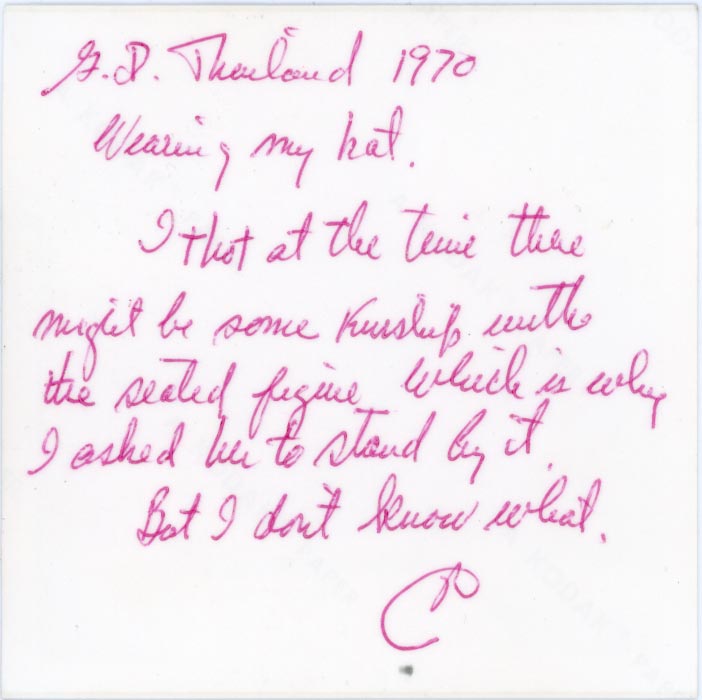 G.D. Thailand 1970
Wearing my hat.
I thot at the time there
might be some Kinship with
the seated figure which is why
I asked her to stand by it.
But I don't know what.